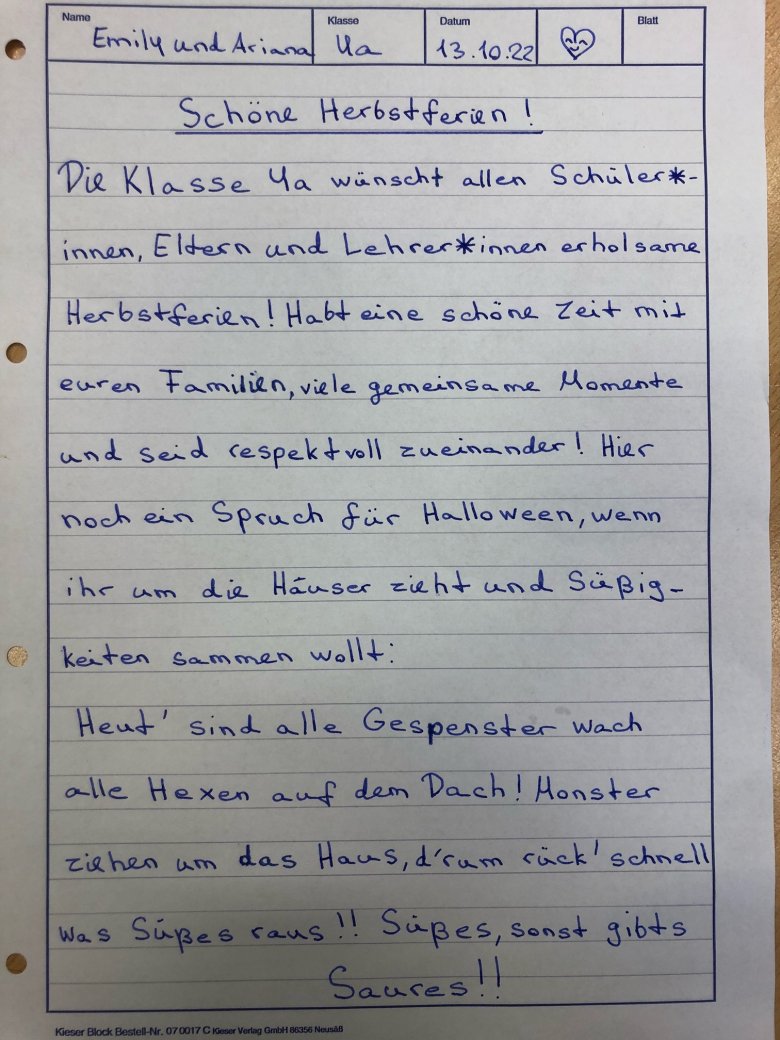 Name Klasse Datum Blatt
Emily und Ariana 4a 13.10.22
Schöne Herbstferien!
Die Klasse 4a wünscht allen Schüler*-
innen, Eltern und Lehrer*innen erholsame
Herbstferien! Habt eine schöne Zeit mit
euren Familien, viele gemeinsame Momente
und seid respektvoll zueinander! Hier
noch ein Spruch für Halloween, wenn
ihr um die Häuser zieht und Süßig-
keiten sammen wollt:
Heut' sind alle Gespenster wach
alle Hexen auf dem Dach! Monster
ziehen um das Haus, d'rum rück' schnell
was Süßes raus!! Süßes, sonst gibts
Saures!!
Kieser Block Bestell-Nr. 07 0017 C Kieser Verlag GmbH 86356 Neusäß